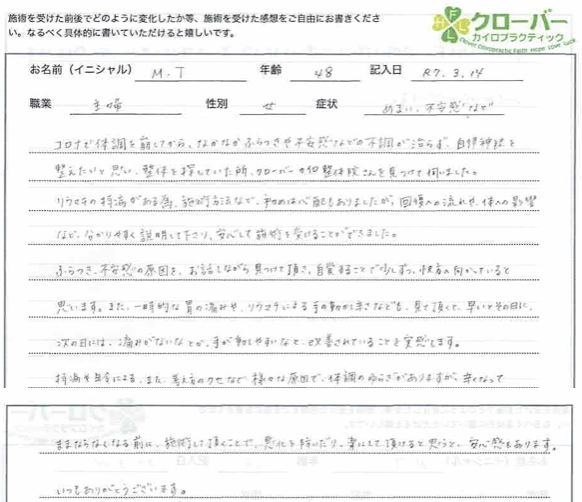 施術を受けた前後でどのように変化したか等、施術を受けた感想をご自由にお書きくださ
い。なるべく具体的に書いていただけると嬉しいです。
クローバー
カイロプラクティック
Clover Chiropractic Faith Hope Love Luck
お名前（イニシャル） M.T 年齢 48 記入日 R7.3.14
職業 主婦 性別 女 症状 めまい、不安感など
コロナで体調を崩してから、なかなかふらつきや不安感などの不調が治らず、自律神経を
整えたいと思い、整体を探していた所、クローバー整体院さんを見つけて伺いました。
リウマチの持病がある為、施術方法など、初めは心配もありましたが、回復への流れや、体への影響
など、分かりやすく説明して下さり、安心して施術を受けることができました。
ふらつき、不安感の原因を、お話しながら見つけて頂き、自覚することで少しずつ、快方へ向かっていると
思います。また、一時的な胃の痛みや、リウマチによる手の動かし辛さなども、見て頂くと、早いとその日に、
次の日には、痛みがないなとか、手が動かしやすいなと、改善されていることを実感します。
持病や年令による、また、考え方のクセなど様々な原因で、体調のゆらぎがありますが、辛くなって
ままならなくなる前に、施術して頂くことで、悪化を防いだり、楽にして頂けると思うと、安心感もあります。
いつもありがとうございます。